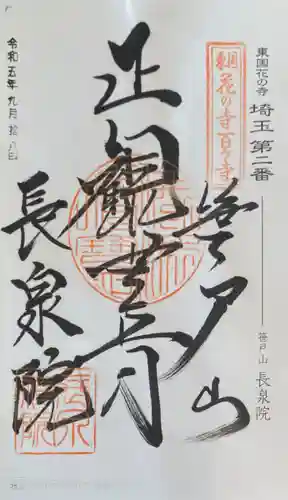 東国花の寺 埼玉 第二番
笹戸山 長泉院
東国
花の寺百ヶ寺
笹戸山
正観世音
長泉院
令和五年九月拾八日